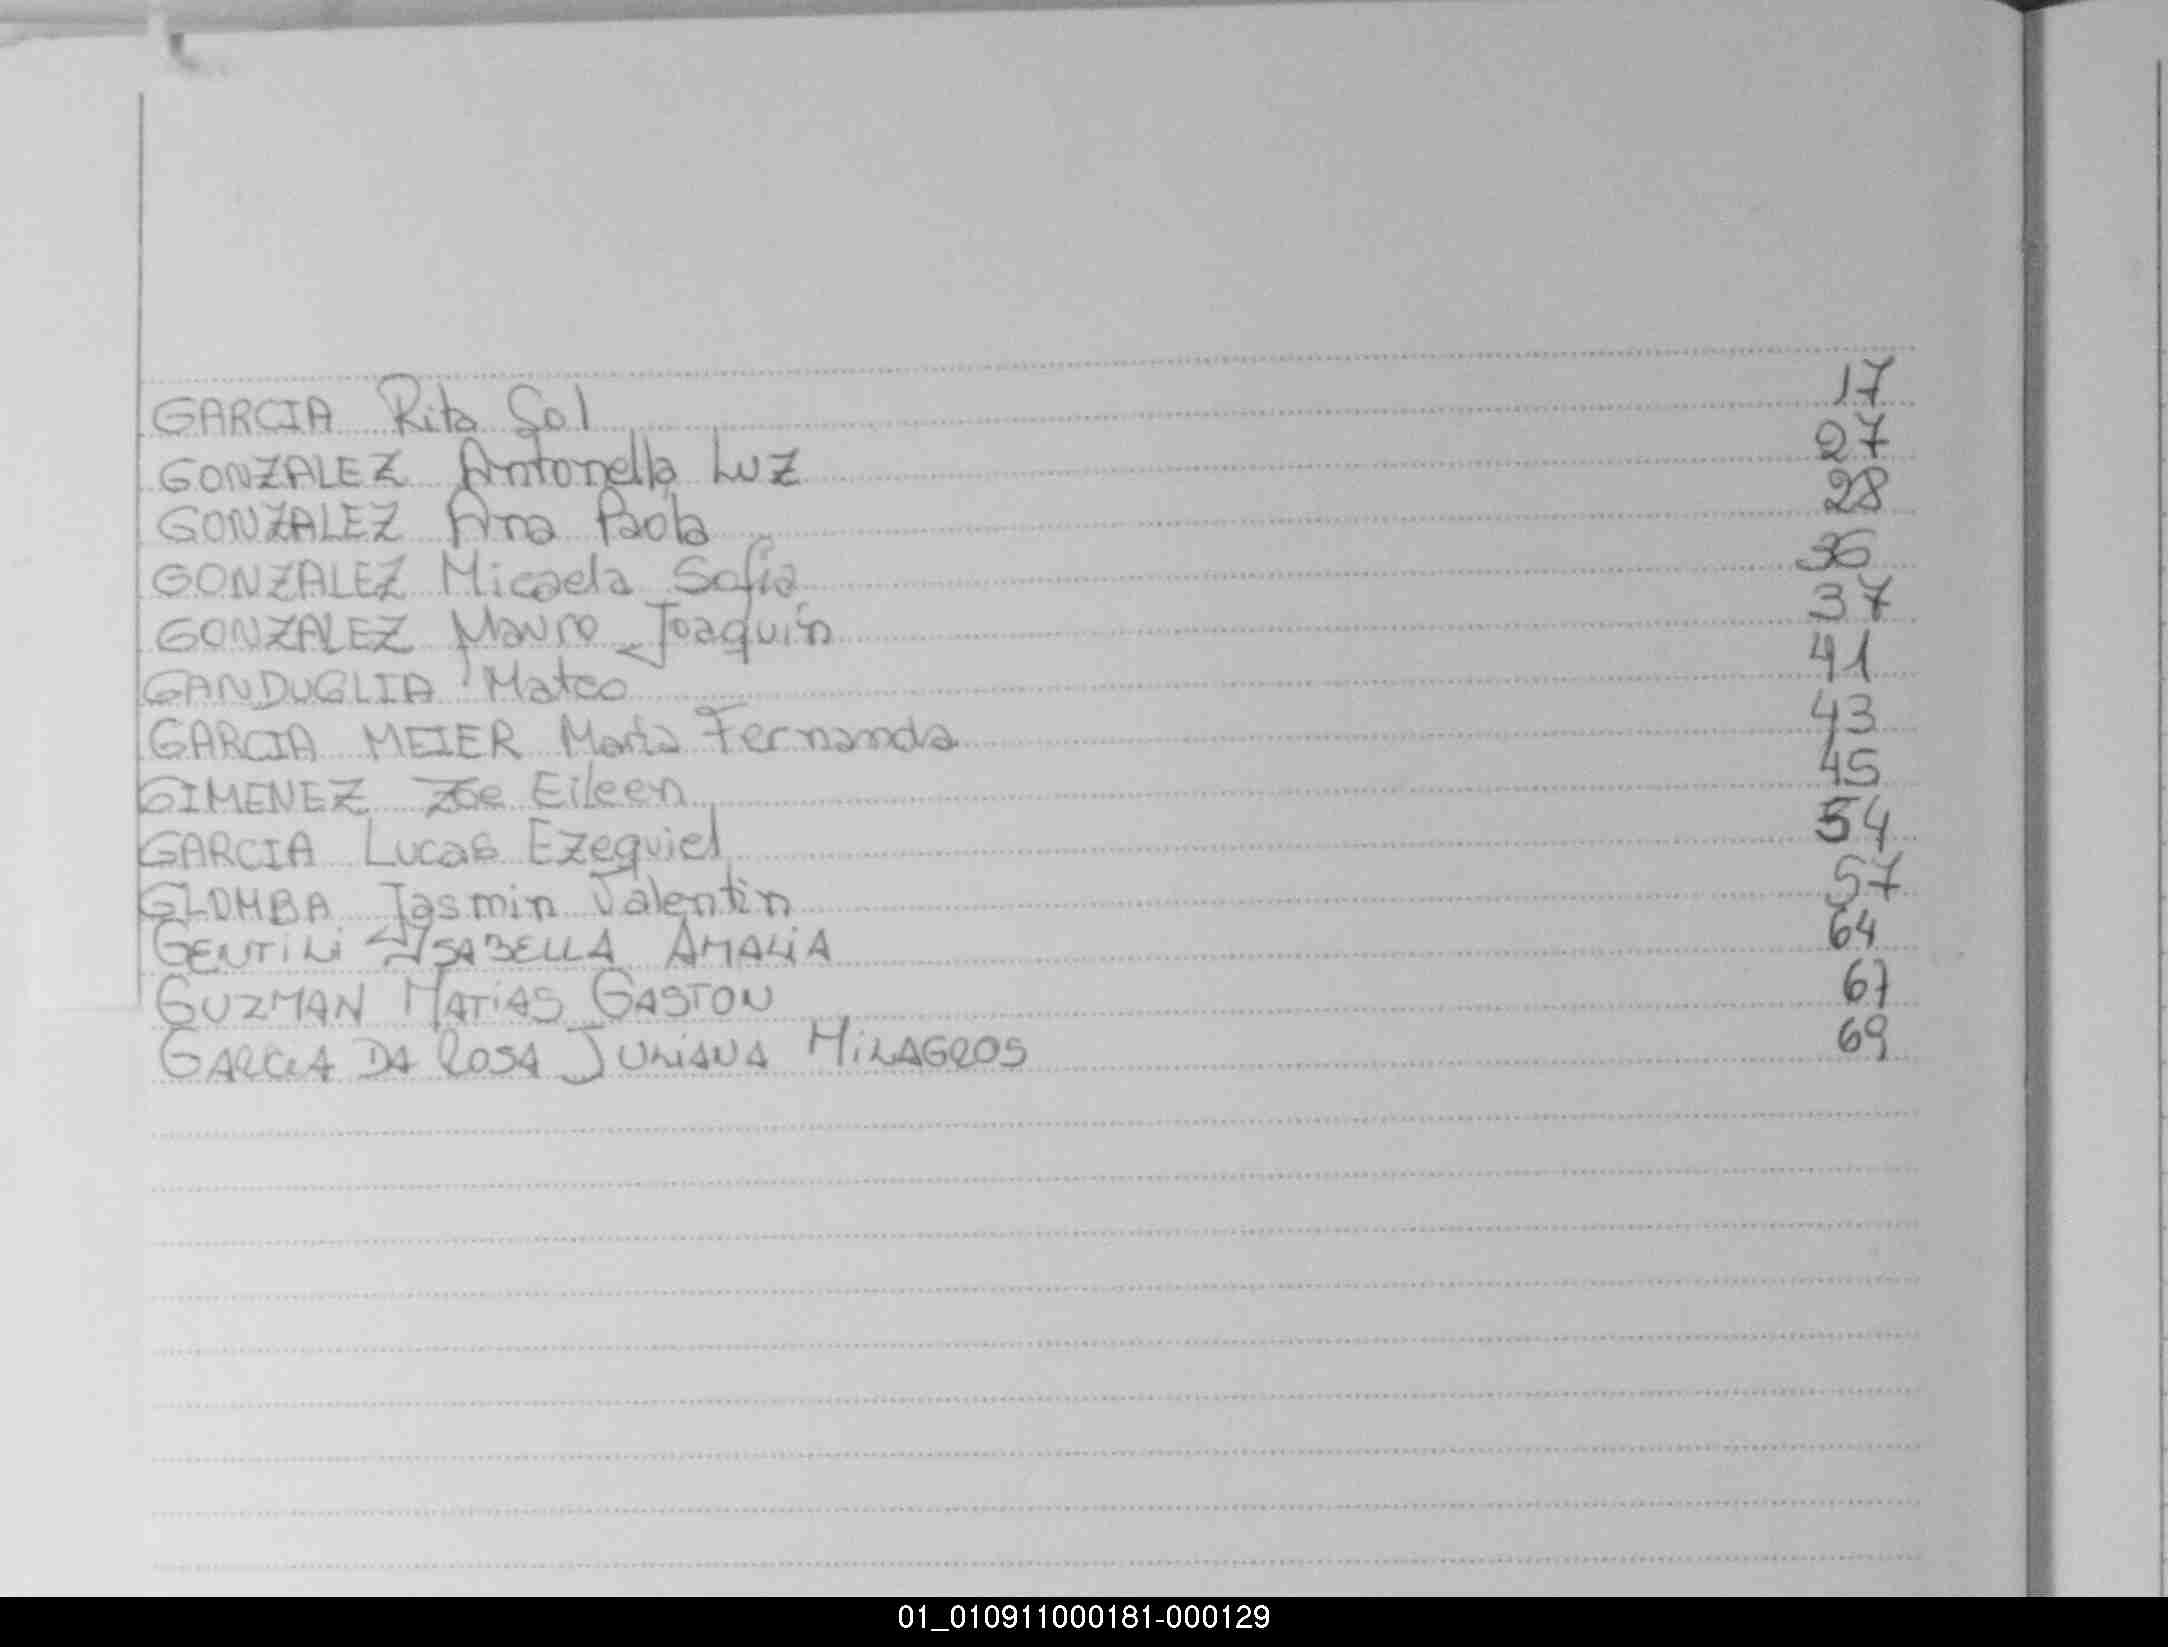 GARCIA Rita Sol 17
GONZALEZ Antonella Luz 27
GONZALEZ Ana Paola 28
GONZALEZ Micaela Sofia 36
GONZALEZ Mauro Joaquín 37
GANDUGLIA Mateo 41
GARCIA MEIER María Fernanda 43
GIMENEZ Zoe Eileen 45
GARCIA Lucas Ezequiel 54
GLOMBA Jasmin Valentin 57
GENTILI ISABELLA AMALIA 64
GUZMAN MATIAS GASTON 67
GARCIA DA ROSA JULIANA MILAGROS 69
01_010911000181-000129